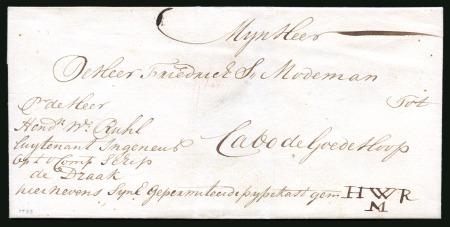 Myn Heer
De Heer Friedrick S. Modeman
Tot
Cabo de Goede Hoop
Pr. de Heer
Hendk Wm Ruhl
luytenant Ingenieur
opt Comp Schip
de Draak
hier nevens Syn E
H W R
M